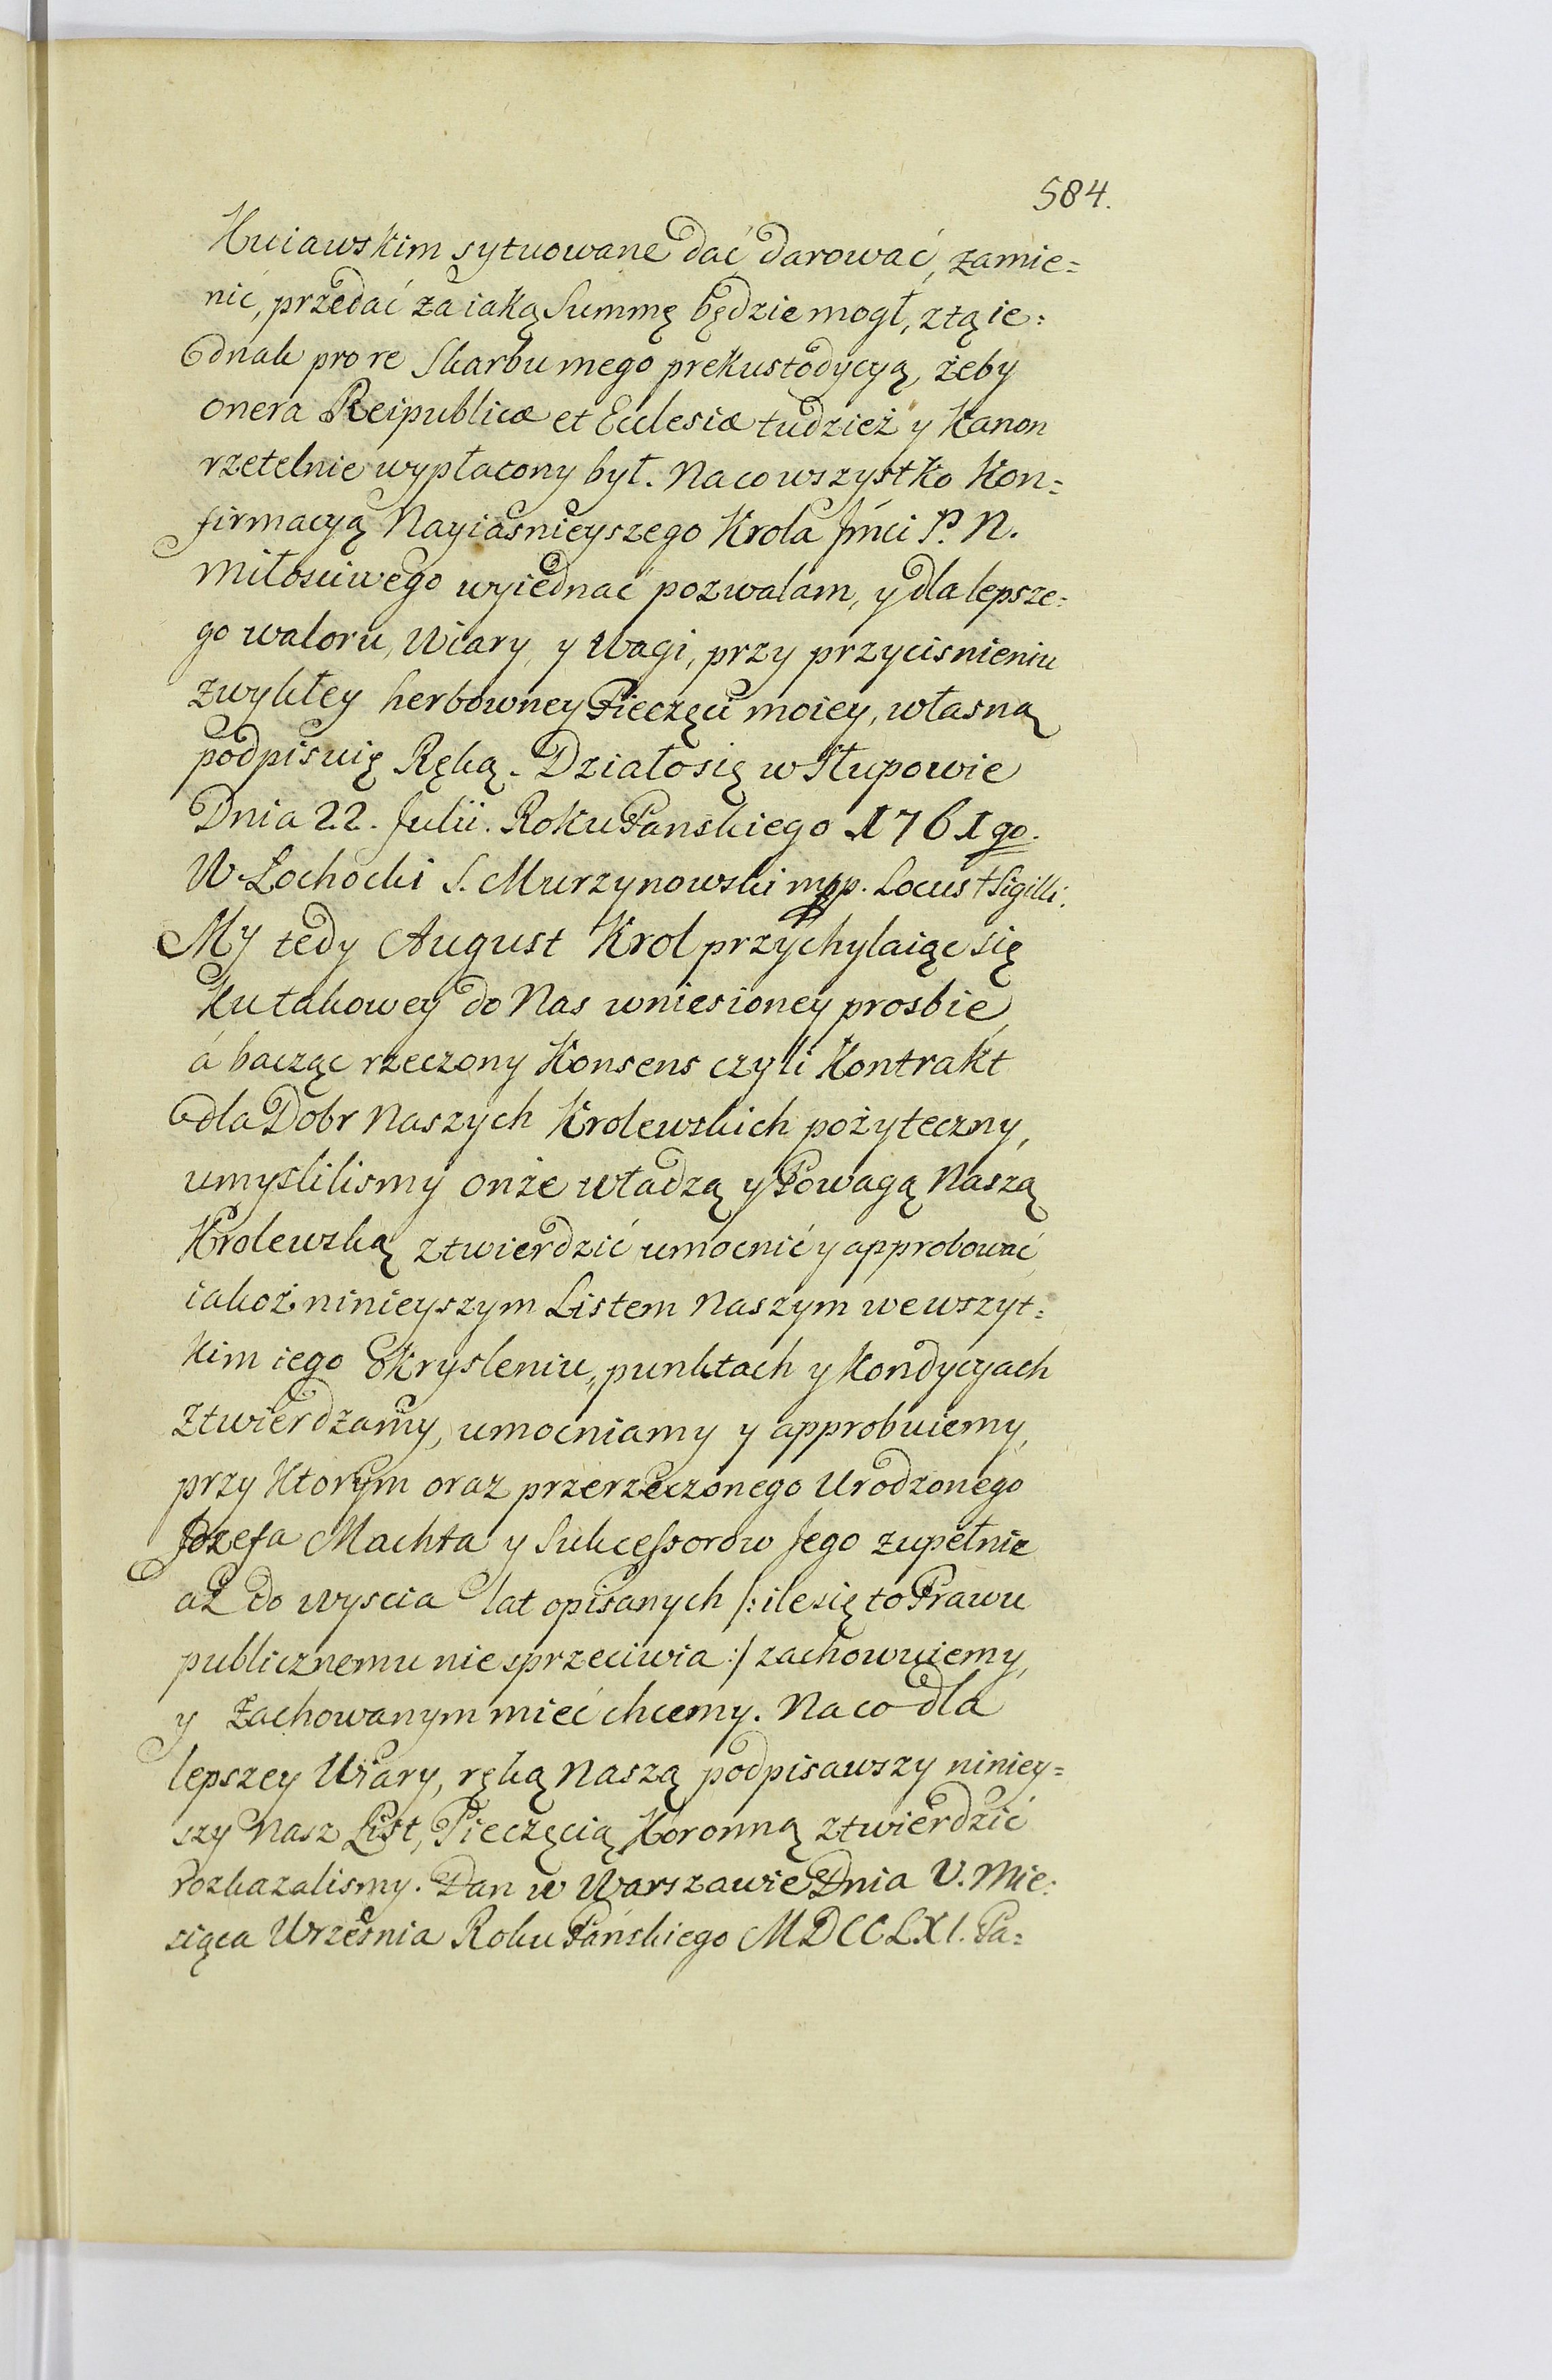 584.
Kuiawskim sytuowane dać darować, zamie=
nić, przedać za iaką Summę będzie mogł, z tą ie=
dnak pro re Skarbu mego prekustodycyą, żeby
onera Reipublicæ et Ecclesiæ tudzież y Kanon
rzetelnie wypłacony był. Na co wszystko Kon=
firmacyą Nayiasnieyszego Krola Jmci P. N.
Miłosciwego wyiednać pozwalam, y dla lepsze=
go waloru, Wiary, y Wagi, przy przycisnieniu
zwykłey herbowney Pieczęci moiey, własną
podpisuię Ręką. Działo się w Słupowie
Dnia 22. Julii. Roku Panskiego 1761go.
W. Łochocki S. Murzynowski mpp. Locus † Sigilli.
My tedy August Krol przychylaiąc się
Ku takowey do Nas wniesioney prosbie,
á bacząc rzeczony Konsens czyli Kontrakt
dla Dobr Naszych Krolewskich pożyteczny,
umyslilismy onże władzą y Powagą Naszą
Krolewską ztwierdzić umocnić y approbować,
iakoż ninieyszym Listem Naszym we wszyt=
kim iego Okrysleniu, punktach y Kondycyach
ztwierdzamy, umocniamy y approbuiemy,
przy Ktorym oraz przerzeczonego Urodzonego
Jozefa Machta y Sukcessorow Jego zupełnie
aż do wyscia lat opisanych /: ile się to Prawu
publicznemu nie sprzeciwia :/ zachowuiemy,
y zachowanym mieć chcemy. Na co dla
lepszey Wiary, ręką Naszą podpisawszy niniey=
szy Nasz List, Pieczęcią Koronną ztwierdzić
rozkazalismy. Dan w Warszawie Dnia V. Mie=
siąca Września Roku Pańskiego MDCCLXI. Pa=